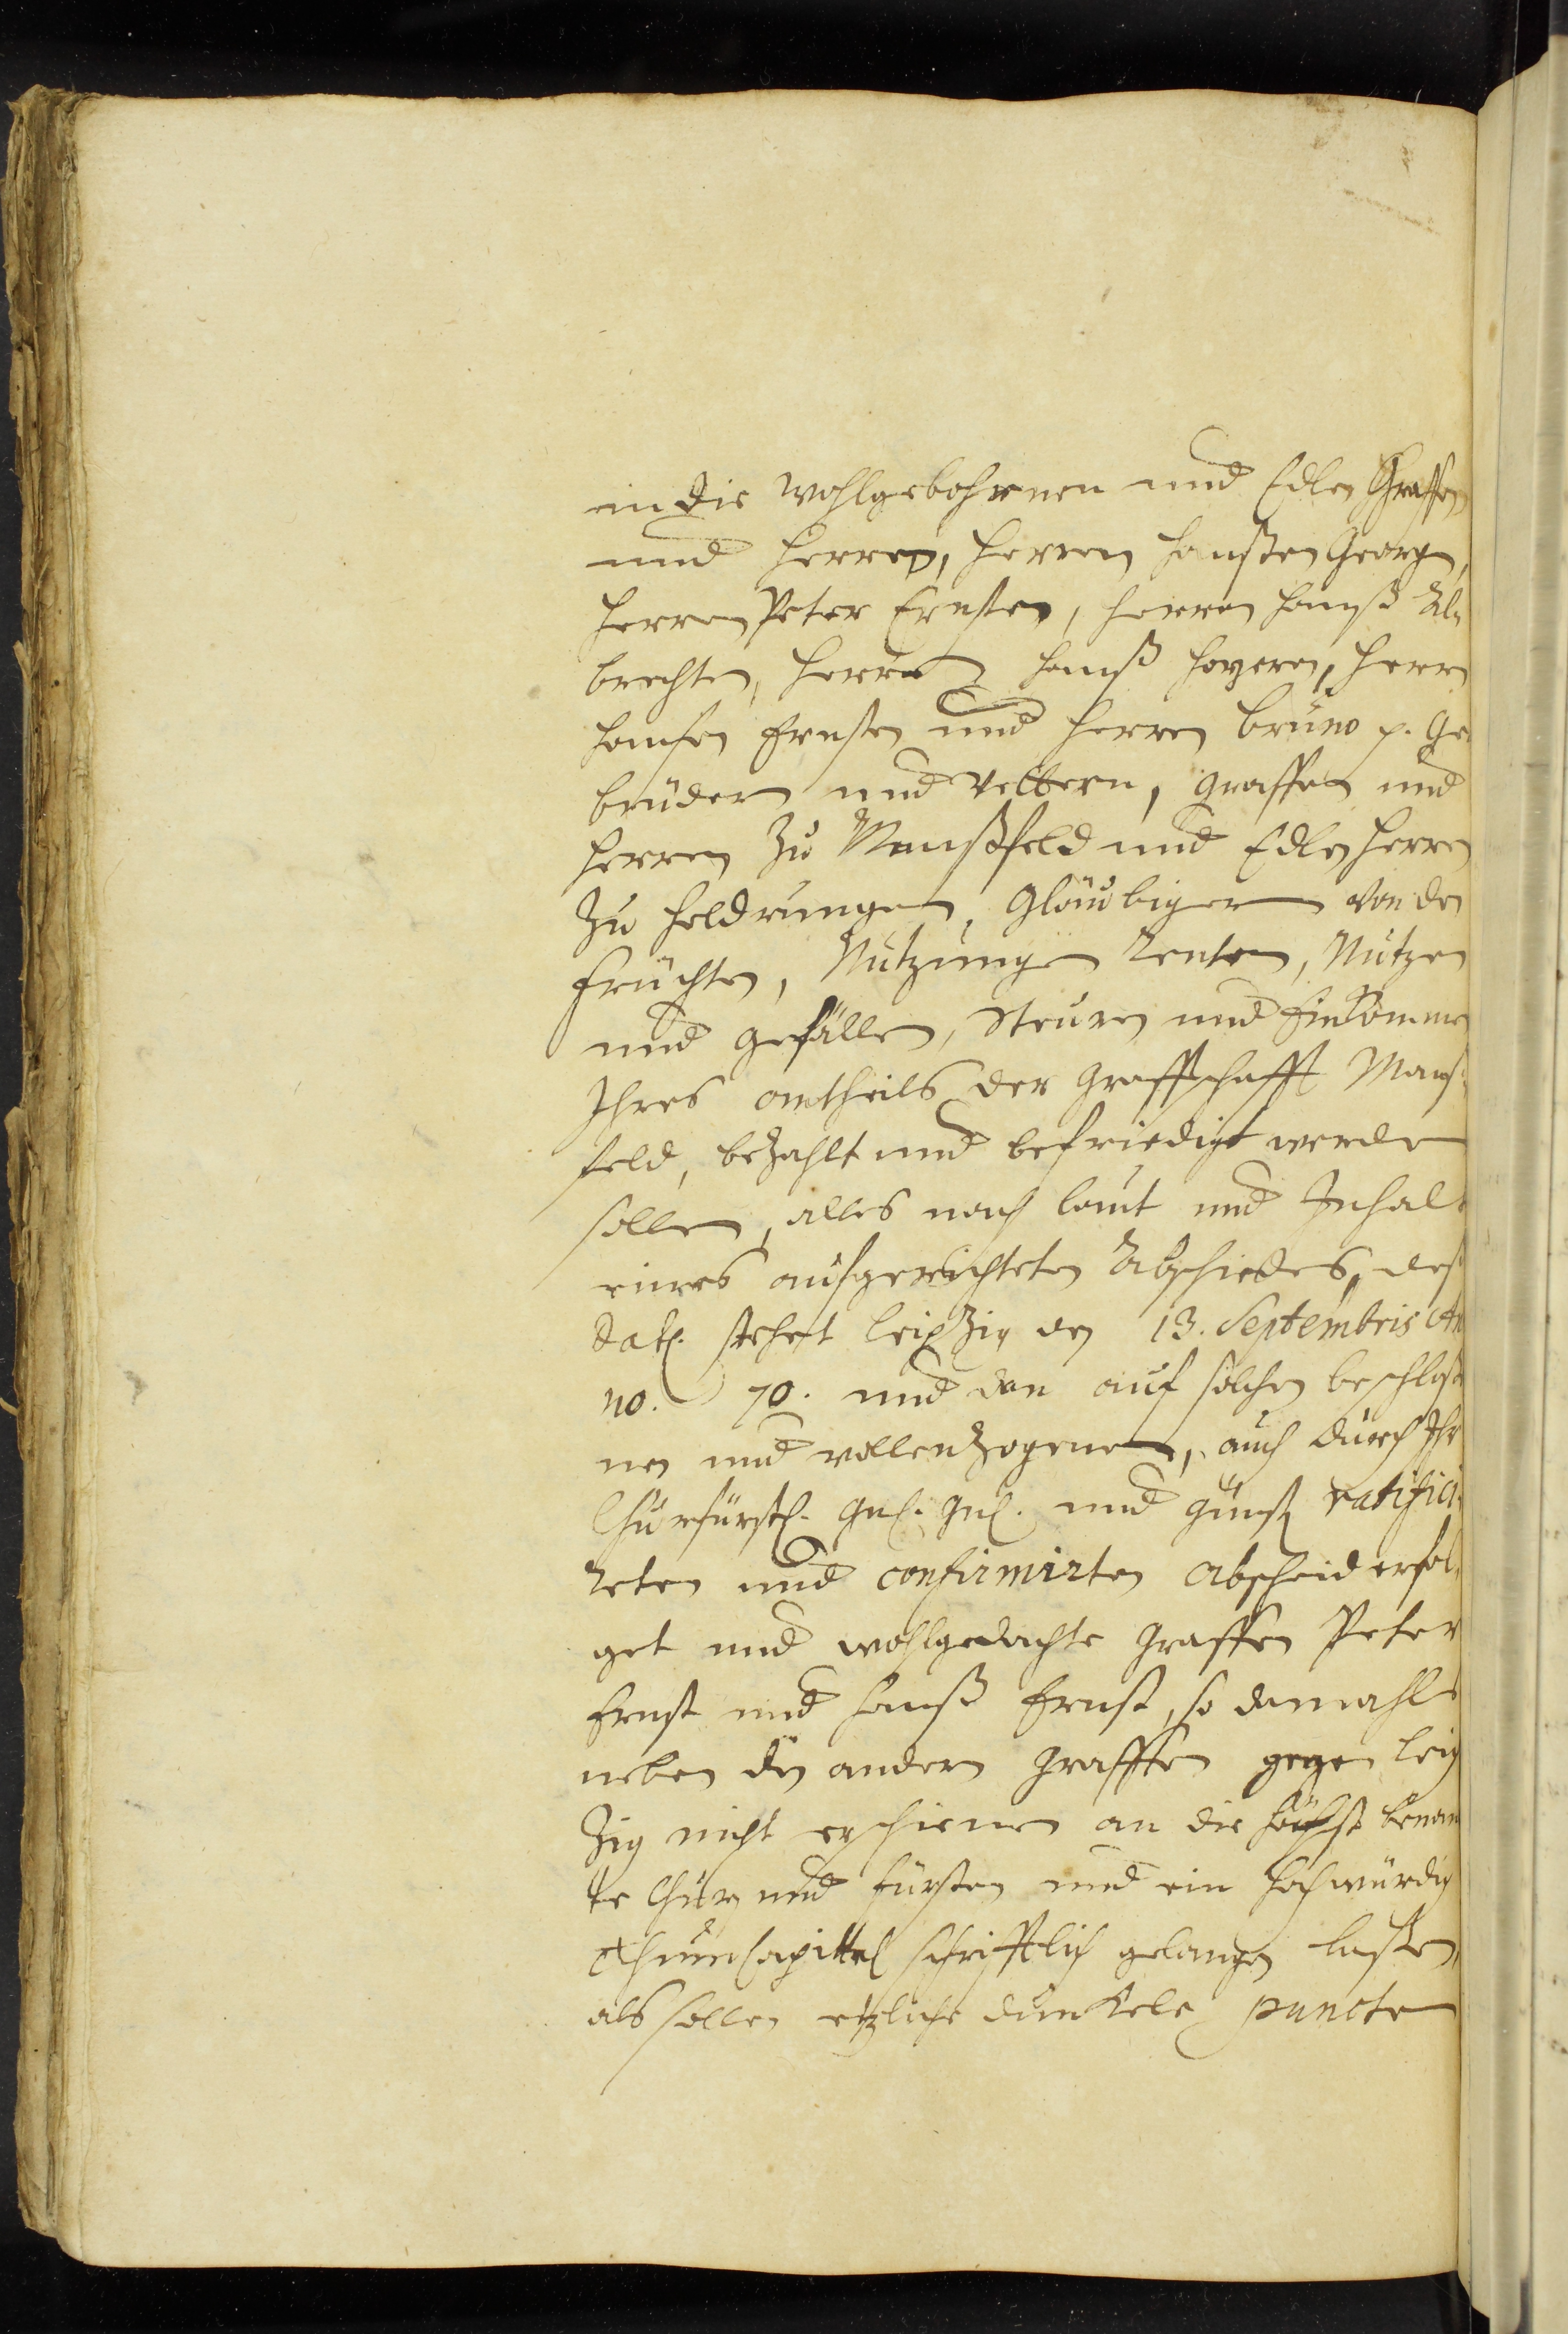 in die Wohlgebohrnen und Edlen Graffen
und Herren, Herren Hanßen Georgen,
Herren Peter Ernsten, Herren Hanß Al,
brechten, Herren Hanß Hoyeren, Herrn
Hansen Ernsten und Herren Bruno p. Ge,
brüdern und Vettern, Graffen und
Herren Zu Manßfeld und Edlen Herren
Zu Heldrungen, Gläubigern von den
Früchten, Nutzungen Renten, Nutzen
und Gefällen, Steuren und Einkommen
Ihres antheils der Graffschafft Manß,
feld, bezahlt und befriedigt werden
sollen, alles nach laut und Inhalt
eines aufgerichteten Abschiedes, des
Dat. stehet Leipzig den 13. Septembris An
no. 70. und dan auf solchen beschloße
nen und vollenzogenen, auch durch Ihr
Churfürstl. Gnl. Gnl. und Gunst ratifici,
reten und confirmirten Abscheid erfol,
get und wohlgedachte Graffen Peter
Ernst und Hanß Ernst, so damahls
neben den andern Grafffen gegen Leip
Zig nicht erschienen an die höchst benan
te Chur und Fürsten und ein Hochwürdig
Thumcapittel schrifftlich gelangen laßen,
als sollen etzliche dunckele puncten